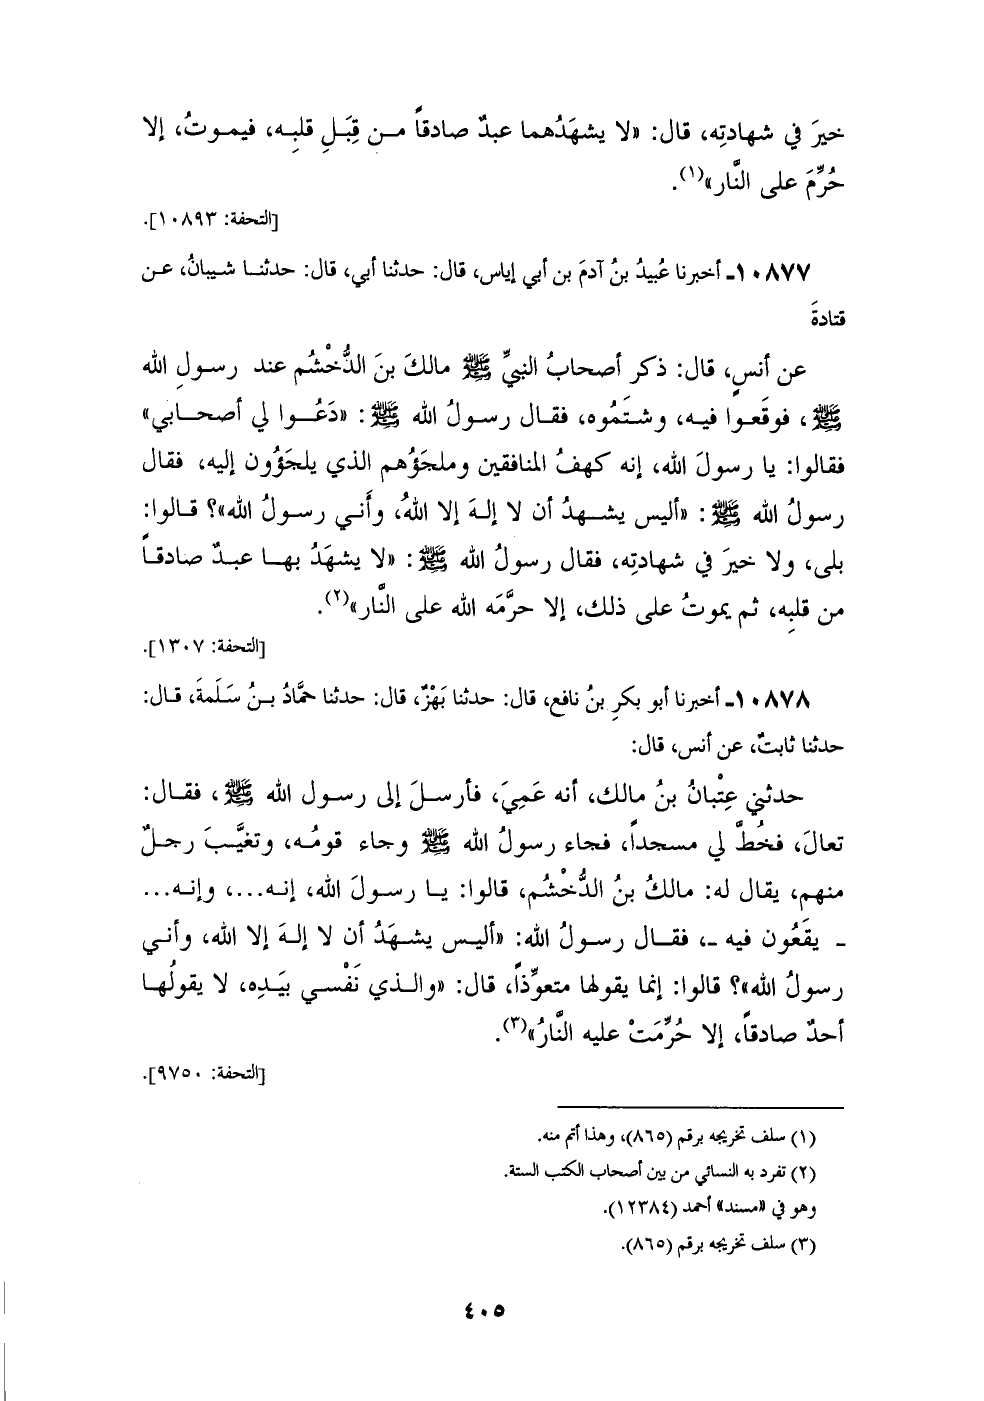 خيرَ في شهادتِه، قال: «لا يشهَدُهما عبدٌ صادقاً من قِبَلِ قلبِه، فيموتُ، إلا
حُرِّمَ على النَّار»(١).
[التحفة: ١٠٨٩٣].
١٠٨٧٧ـ أخبرنا عُبيدُ بنُ آدمَ بن أبي إياس، قال: حدثنا أبي، قال: حدثنا شيبانُ، عن
قتادةَ
عن أنسٍ، قال: ذكر أصحابُ النبيِّ ﷺ مالكَ بنَ الدُّخْشُم عند رسولِ الله
ﷺ، فوقَعوا فيه، وشتَمُوه، فقال رسولُ الله ﷺ: «دَعُوا لي أصحابي»
فقالوا: يا رسولَ الله، إنه كهفُ المنافقين وملجَؤُهم الذي يلجَؤُون إليه، فقال
رسولُ الله ﷺ: «أليس يشهدُ أن لا إلهَ إلا اللهُ، وأَني رسولُ الله»؟ قالوا:
بلى، ولا خيرَ في شهادتِه، فقال رسولُ الله ﷺ: «لا يشهَدُ بها عبدٌ صادقاً
من قلبِه، ثم يموتُ على ذلك، إلا حرَّمَه الله على النَّار»(٢).
[التحفة: ١٣٠٧].
١٠٨٧٨ـ أخبرنا أبو بكرِ بنُ نافع، قال: حدثنا بَهْزٌ، قال: حدثنا حمَّادُ بنُ سَلَمةَ، قال:
حدثنا ثابتٌ، عن أنس، قال:
حدثني عِتْبانُ بنُ مالك، أنه عَمِيَ، فأرسلَ إلى رسول الله ﷺ، فقال:
تعالَ، فخُطَّ لي مسجداً، فجاء رسولُ الله ﷺ وجاء قومُه، وتغيَّبَ رجلٌ
منهم، يقال له: مالكُ بنُ الدُّخْشُم، قالوا: يا رسولَ الله، إنه...، وإنه...
ـ يقَعُون فيه ـ، فقال رسولُ الله: «أليس يشهَدُ أن لا إلهَ إلا الله، وأني
رسولُ الله»؟ قالوا: إنما يقولها متعوِّذاً، قال: «والذي نَفْسي بيَدِه، لا يقولُها
أحدٌ صادقاً، إلا حُرِّمَتْ عليه النَّارُ»(٣).
[التحفة: ٩٧٥٠].
(١) سلف تخريجه برقم (٨٦٥)، وهذا أتم منه.
(٢) تفرد به النسائي من بين أصحاب الكتب الستة.
وهو في «مسند» أحمد (١٢٣٨٤).
(٣) سلف تخريجه برقم (٨٦٥).
٤٠٥